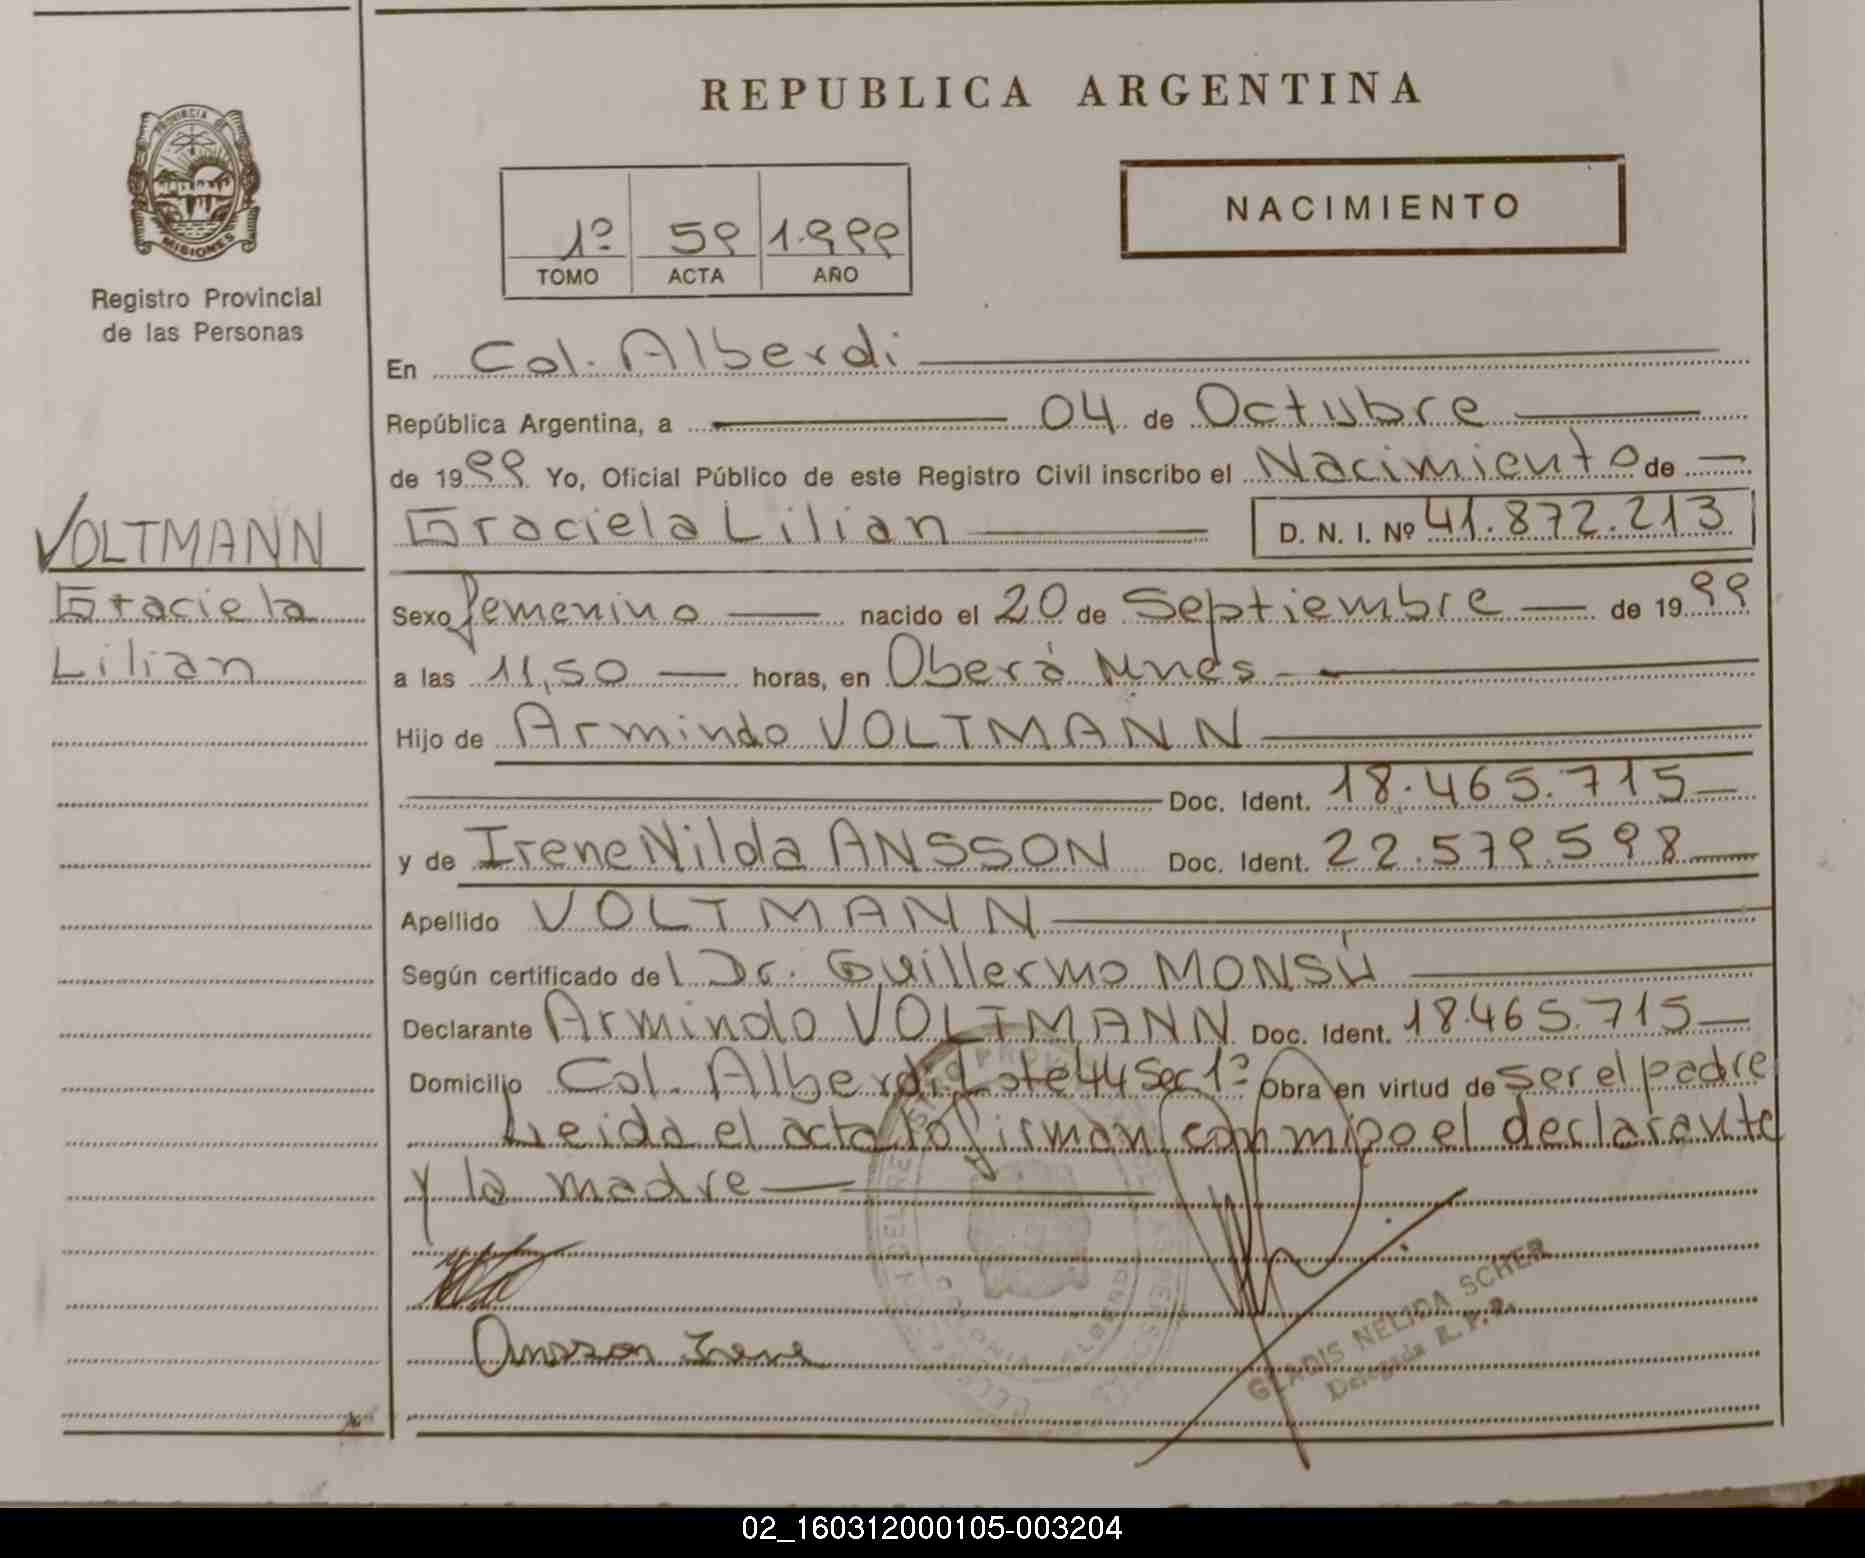 REPUBLICA ARGENTINA
PROVINCIA DE
MISIONES
Registro Provincial
de las Personas
1º 59 1.999
TOMO ACTA AÑO
NACIMIENTO
En Col. Alberdi
República Argentina, a 04 de Octubre
de 1999 Yo, Oficial Público de este Registro Civil inscribo el Nacimiento de
VOLTMANN
Graciela
Lilian
Graciela Lilian D. N. I. Nº 41.872.213
Sexo femenino nacido el 20 de Septiembre de 1999
a las 11,50 horas, en Oberá Mnes
Hijo de Armindo VOLTMANN
Doc. Ident. 18.465.715
y de Irene Nilda ANSSON Doc. Ident. 22.579.598
Apellido VOLTMANN
Según certificado del Dr. Guillermo MONSÚ
Declarante Armindo VOLTMANN Doc. Ident. 18.465.715
Domicilio Col. Alberdi Lote 44 Sec 1ª Obra en virtud de ser el padre
Leida el acta la firman conmigo el declarante
y la madre
Ansson Irene
GLADIS NELIDA SCHER
Delegada R. P. P.
02_160312000105-003204